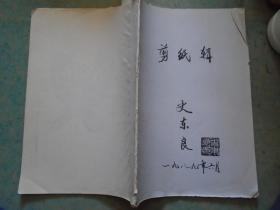 剪纸辑
史东良
一九八九年六月